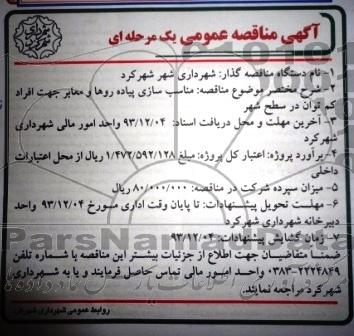 آگهی مناقصه عمومی یک مرحله ای
شهرداری شهرکرد
۱- نام دستگاه مناقصه گذار: شهرداری شهر شهرکرد
۲- شرح مختصر موضوع مناقصه: مناسب سازی پیاده روها و معابر جهت افراد
کم توان در سطح شهر
۳- آخرین مهلت و محل دریافت اسناد: ۹۳/۱۲/۰۴ واحد امور مالی شهرداری
شهرکرد
۴- برآورد پروژه: اعتبار کل پروژه: مبلغ ۱/۴۷۲/۵۹۲/۱۲۸ ریال از محل اعتبارات
داخلی
۵- میزان سپرده شرکت در مناقصه: ۸۰/۰۰۰/۰۰۰ ریال
۶- مهلت تحویل پیشنهادات: تا پایان وقت اداری مورخ ۹۳/۱۲/۰۴ واحد
دبیرخانه شهرداری شهرکرد
۷- زمان گشایش پیشنهادات: ۹۳/۱۲/۰۴
ضمنا متقاضیان جهت اطلاع از جزئیات بیشتر این مناقصه با شماره تلفن
۰۳۸۳-۲۲۲۴۸۴۹ واحد امور مالی تماس حاصل فرمایند و یا به شهرداری
شهرکرد مراجعه نمایند.
روابط عمومی شهرداری شهرکرد
ParsNamadData